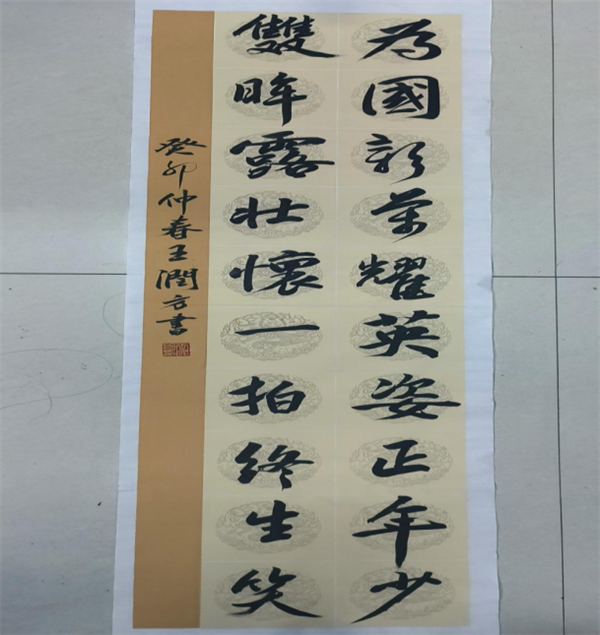 為國耀英姿正年少
雙眸露壯懷一拍終生笑
癸卯仲春王潤方書